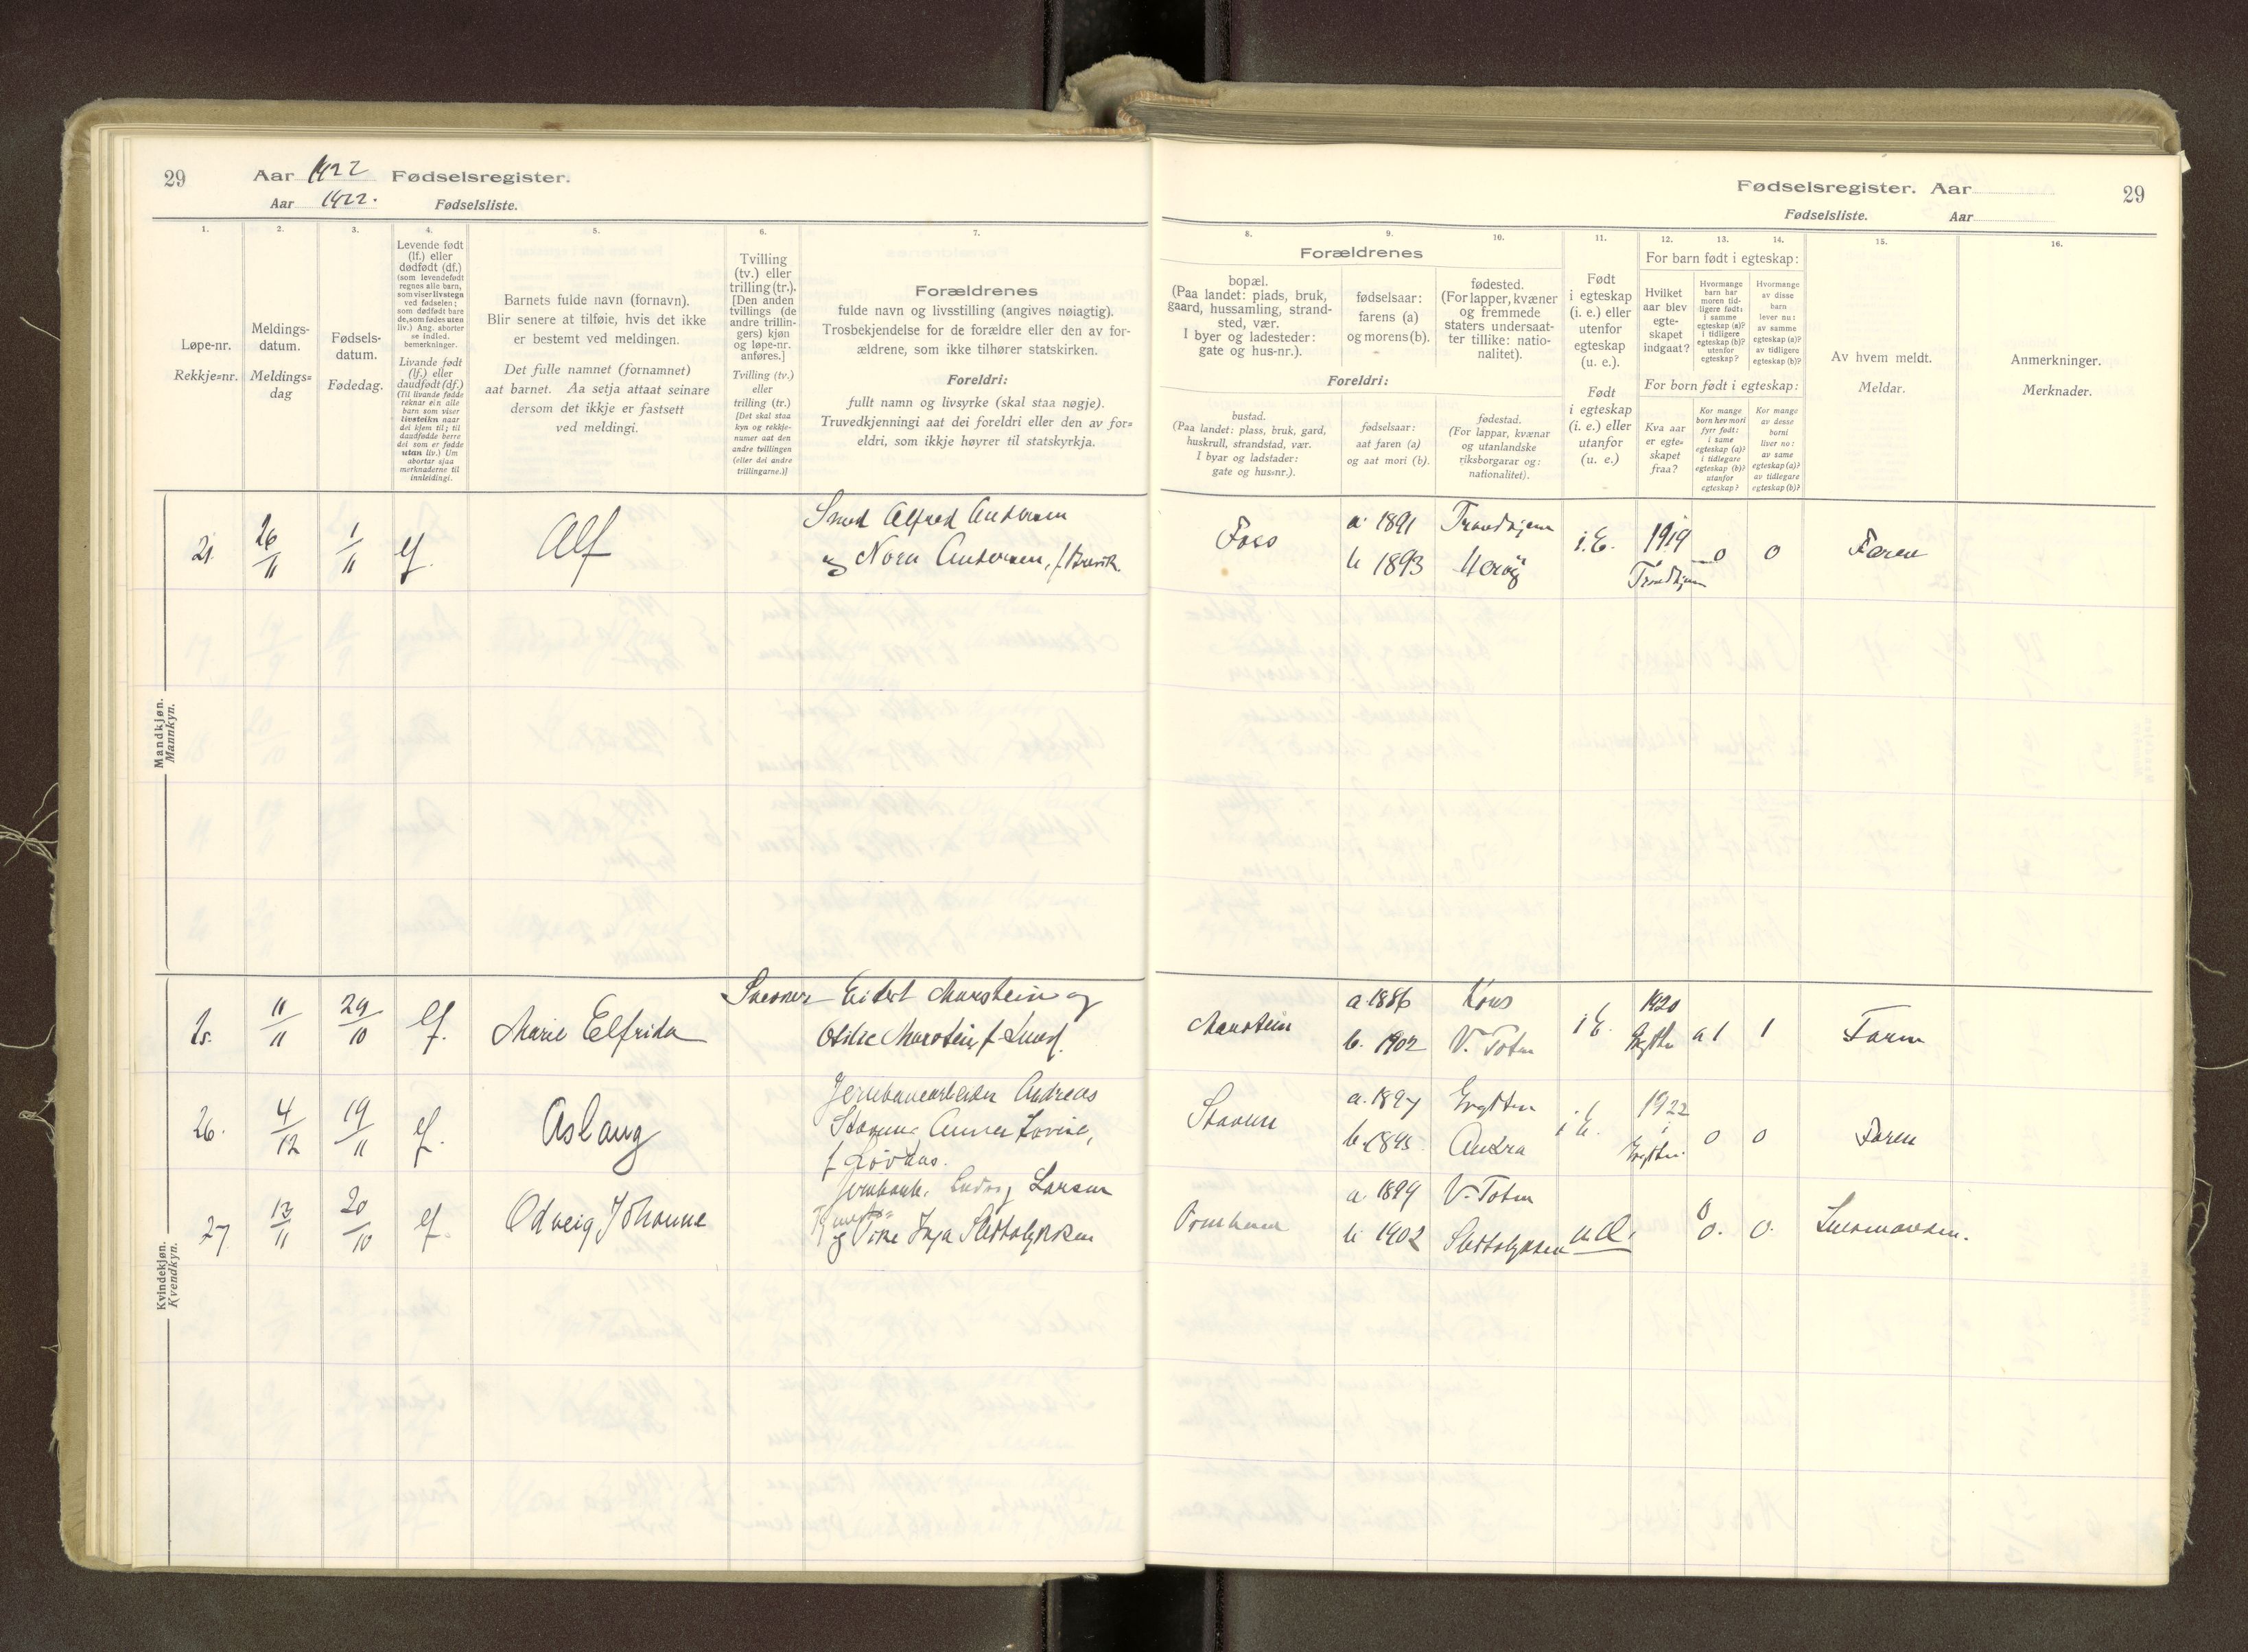 29
Aar 1922 Fødselsregister.
Aar 1922. Fødselsliste.
1.
2.
3.
4.
5.
6.
7.
Løpe-nr.
Rekkje=nr.
Meldings-
datum.
Meldings=
dag
Fødsels-
datum.
Fødedag.
Levende født
(lf.) eller
dødfødt (df.)
(som levendefødt
regnes alle barn,
som viser livstegn
ved fødselen;
som dødfødt bare
de, som fødes uten
liv.) Ang. aborter
se indled.
bemerkninger.
Livande født
(lf.) eller
daudfødt (df.)
(Til livande fødde
reknar ein alle
barn som viser
livsteikn naar
dei kjem til; til
daudfødde berre
dei som er fødde
utan liv.) Um
abortar sjaa
merknaderne til
innleidingi.
Barnets fulde navn (fornavn).
Blir senere at tilføie, hvis det ikke
er bestemt ved meldingen.
Det fulle namnet (fornamnet)
aat barnet. Aa setja attaat seinare
dersom det ikkje er fastsett
ved meldingi.
Tvilling
(tv.) eller
trilling (tr.).
[Den anden
tvillings (de
andre trillin-
gers) kjøn
og løpe-nr.
anføres.]
Tvilling (tv.)
eller
trilling (tr.)
[Det skal staa
kyn og rekkje-
numer aat den
andre tvillingen
(eller dei andre
trillingarne.)]
Forældrenes
fulde navn og livsstilling (angives nøiagtig).
Trosbekjendelse for de forældre eller den av for-
ældrene, som ikke tilhører statskirken.
Foreldri:
fullt namn og livsyrke (skal staa nøgje).
Truvedkjenningi aat dei foreldri eller den av for=
eldri, som ikkje høyrer til statskyrkja.
Mandkjøn.
Mannkyn.
21.
26/11
1/11
lf.
Alf
Smed Alfred Andersen
og Nora Andersen, f. Brevik.
Kvindekjøn.
Kvendkyn.
25.
11/11
29/10
lf.
Marie Elfrida
Eidert Marstein og
Otilie Marstein f.
26.
4/12
19/11
lf.
Aslaug
Jernbanearbeider Andreas
27
13/11
20/10
lf.
Odveig Johanne
Jernbanearb. Ludvig Larsen
og Inga Slettolykken
Fødselsregister. Aar
29
Fødselsliste. Aar
8.
9.
10.
11.
12.
13.
14.
15.
16.
Forældrenes
bopæl.
(Paa landet: plads, bruk,
gaard, hussamling, strand-
sted, vær.
I byer og ladesteder:
gate og hus-nr.).
fødselsaar:
farens (a)
og morens (b).
fødested.
(For lapper, kvæner
og fremmede
staters undersaat-
ter tillike: natio-
nalitet).
Foreldri:
bustad.
(Paa landet: plass, bruk, gard,
huskrull, strandstad, vær.
I byar og ladstader:
gate og hus=nr.).
fødselsaar:
aat faren (a)
og aat mori (b).
fødestad.
(For lappar, kvænar
og utanlandske
riksborgarar og:
nationalitet).
Født
i egteskap
(i. e.) eller
utenfor
egteskap
(u. e.).
Født
i egteskap
(i. e.) eller
utanfor
(u. e.)
For barn født i egteskap:
Hvilket
aar blev
egte-
skapet
indgaat?
Hvormange
barn har
moren tid-
ligere født:
i samme
egteskap (a)?
i tidligere
egteskap (b)?
utenfor
egteskap?
Hvormange
av disse
barn
lever nu:
av samme
egteskap (a)?
av tidligere
egteskap (b)?
For born født i egteskap:
Kva aar
er egte=
skapet
fraa?
Kor mange
born hev mori
fyrr født:
i same
egteskap (a)?
i tidlegare
egteskap (b)?
utanfor
egteskap?
Kor mange
av desse
borni
liver no:
av same
egteskap (a)?
av tidlegare
egteskap (b)?
Av hvem meldt.
Meldar.
Anmerkninger.
Merknader.
Foss
a. 1891
b. 1893
Trondhjem
Herøy
i. E.
1919
Trondhjem
0
0
Faren
Marstein
a. 1886
b. 1902
Kors
V. Toten
i E.
1920
a 1
1
Faren
Stavem
a. 1897
b. 1895
Grytten
Aukra
i E.
1922
i
Grytten
0
0
Faren
Ormheim
a. 1899
b. 1902
V. Toten
Slettolykken
u. E.
0
0.
0.